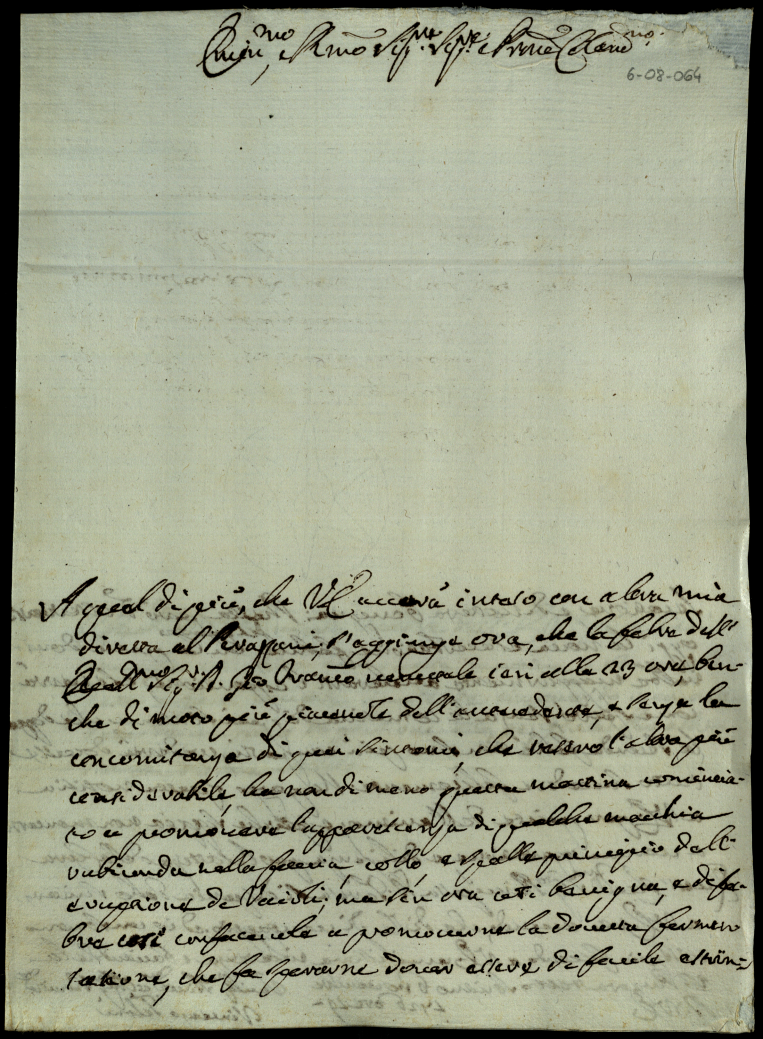 Emin.mo, e R.mo Sig.re Sig.re e Prone Colend.mo
6-08-064
A quel di più, che V.E. avverà inteso con altra mia
diretta al s'aggiunge ora, che la febre dell'
Sig. D. venutale ieri alle 23 ore, ben-
che di moto più piacevole dell'antecedente, e senza la
concomitanza di quei sintomi, che resero l'altra più
considerabile, ha nondimeno questa mattina comincia-
to a promovere l'apparescenza di qualche macchia
rubiconda nella faccia, collo, e spalle principio dell'
eruzzione de Vaioli; ma sin ora così benigna, e di fe-
bre così confacevole a promoverne la dovuta fermen-
tatione, che fa sperarne dover essere di facile